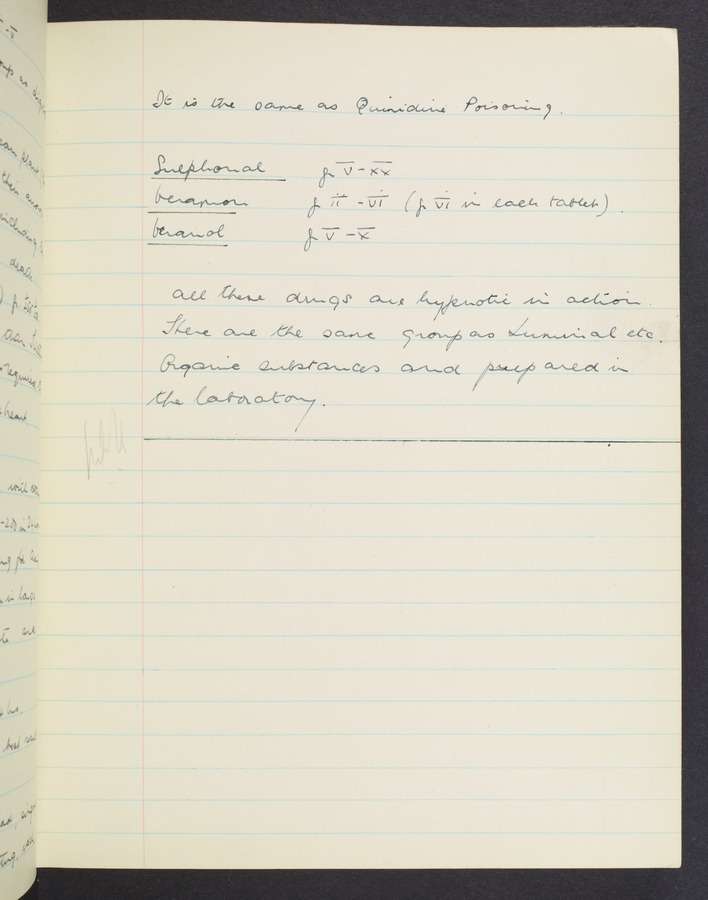 It is the same as Quinidine Poisoning.
Sulphonal gr V - XX
Veramon gr ii - vi (gr vi in each tablet).
Veranol gr V - X
All these drugs are hypnotic in action.
There are the same group as Luminal etc.
Organic substances and prepared in
the laboratory.